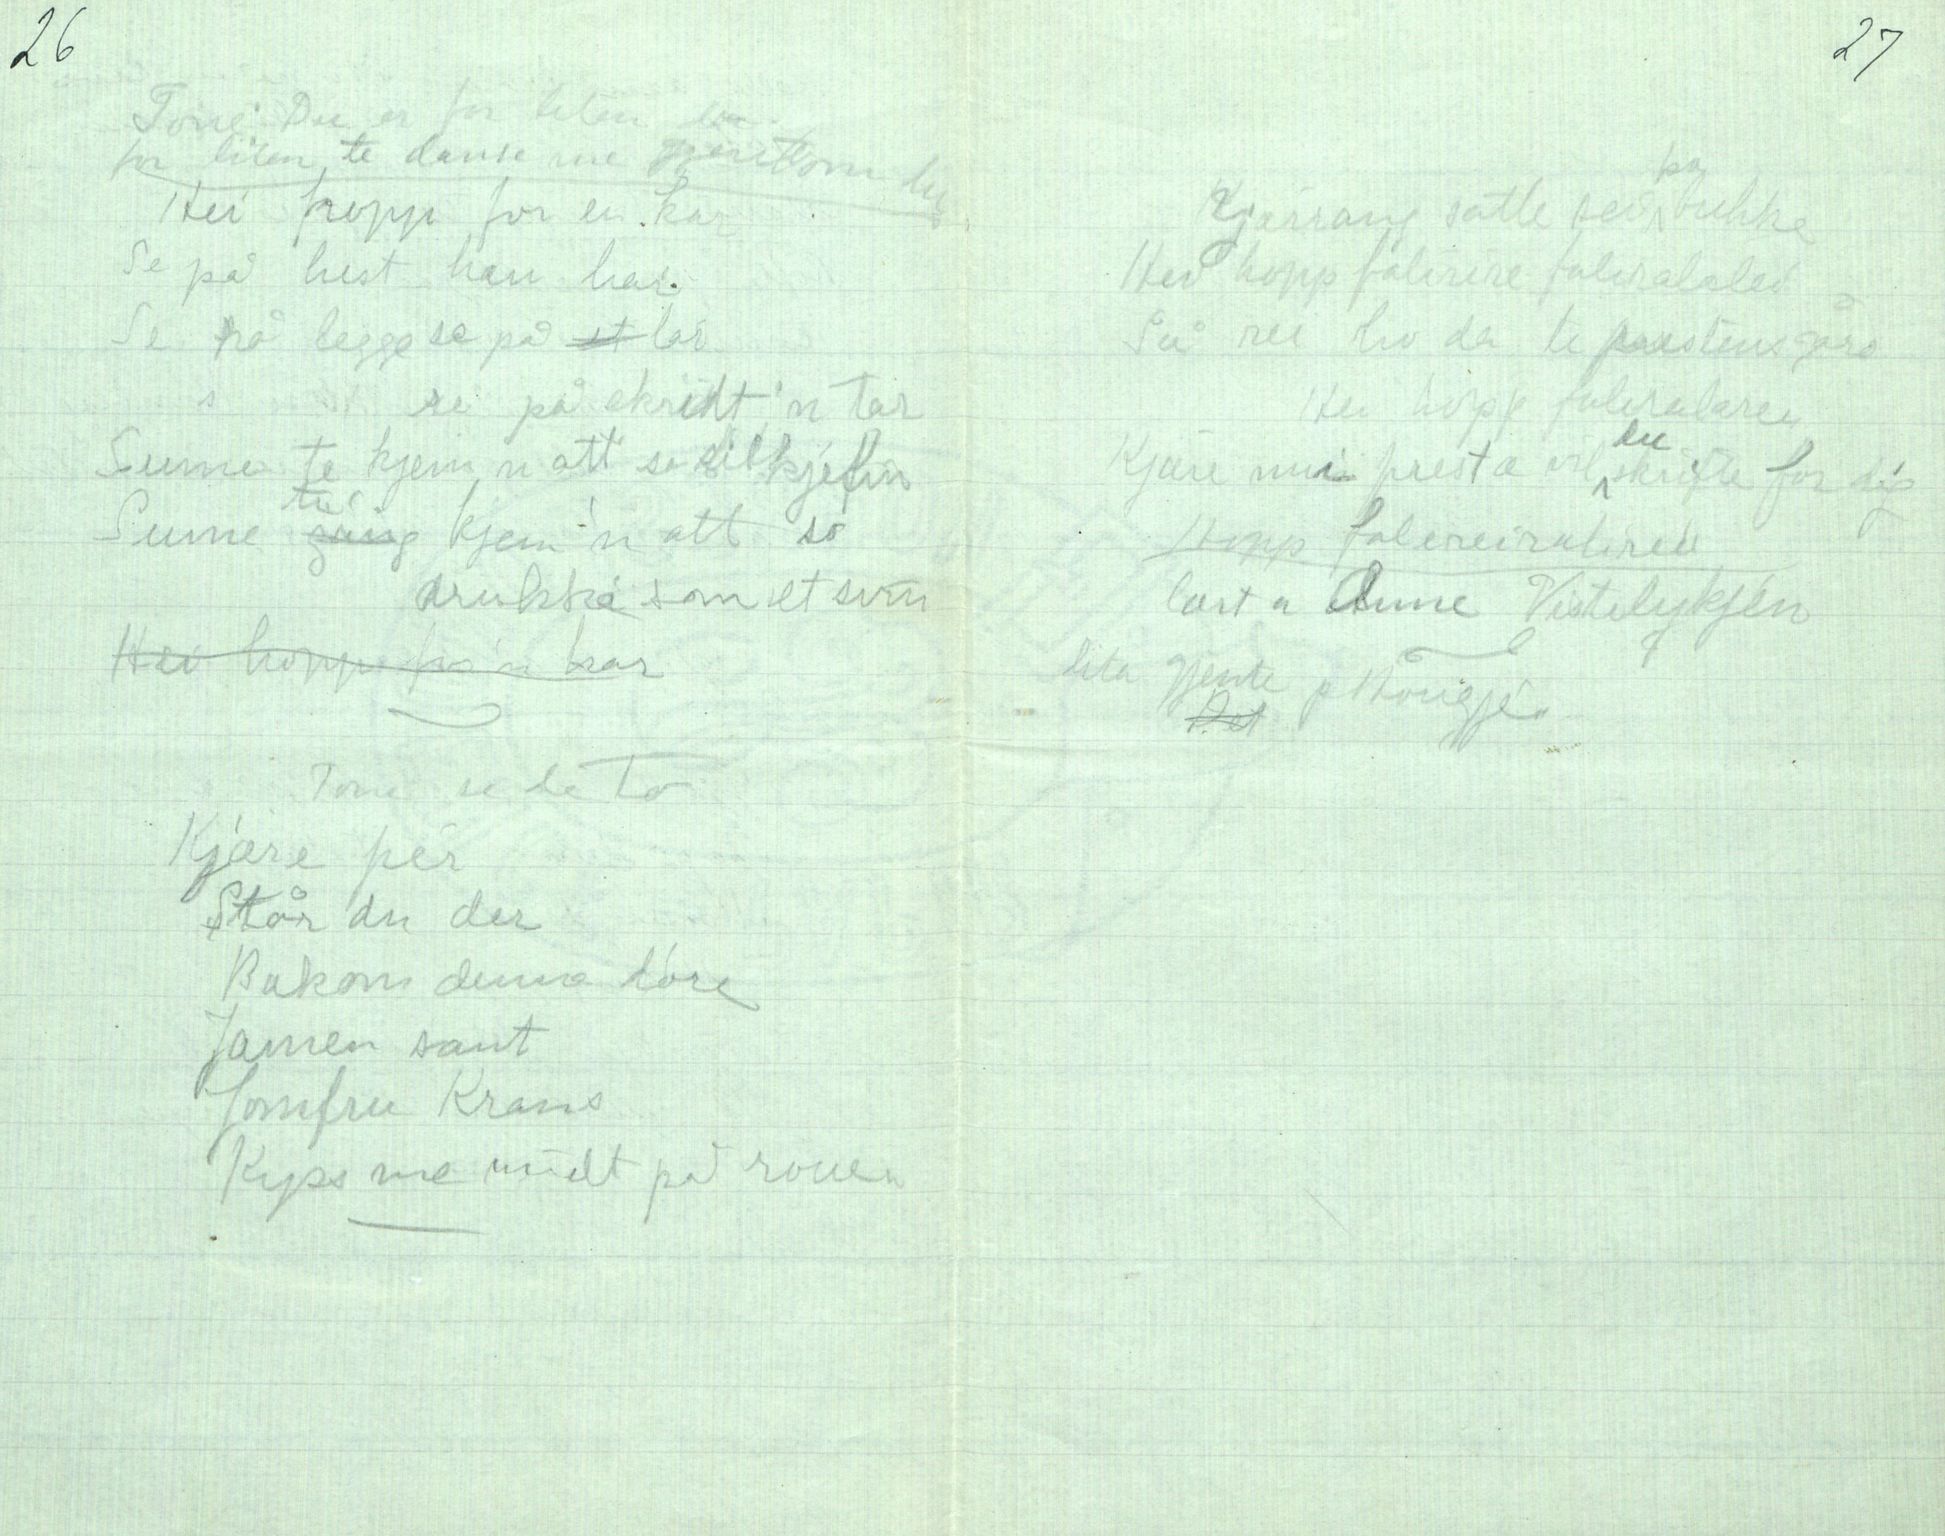 26
Tone: Du er for liten
for liten te danse me gjenton du
Hei hopp for en kar
Se på hest han har
Se på legge se på lår
s re på skridt 'n tar
Sume te kjem 'n att so silkjefin
Sume ti gång kjem 'n att so
drukkjé som et svin
Hei hopp for 'n kar
Tone
Kjære pér
Står du der
Bakom denna döre
Jamen sant
Jomfru Krans
Kyss me midt på rouen
27
Kjærrang satte sei på bukke
Hei hopp falirire faliralalei
Så rei ho da te prestens gård
Hei hopp faliralarei
Kjære min prest a vil du skrifte for dig
Hopp falereiralirei
lært a Anne Vistelykjén
lita gjente
Det